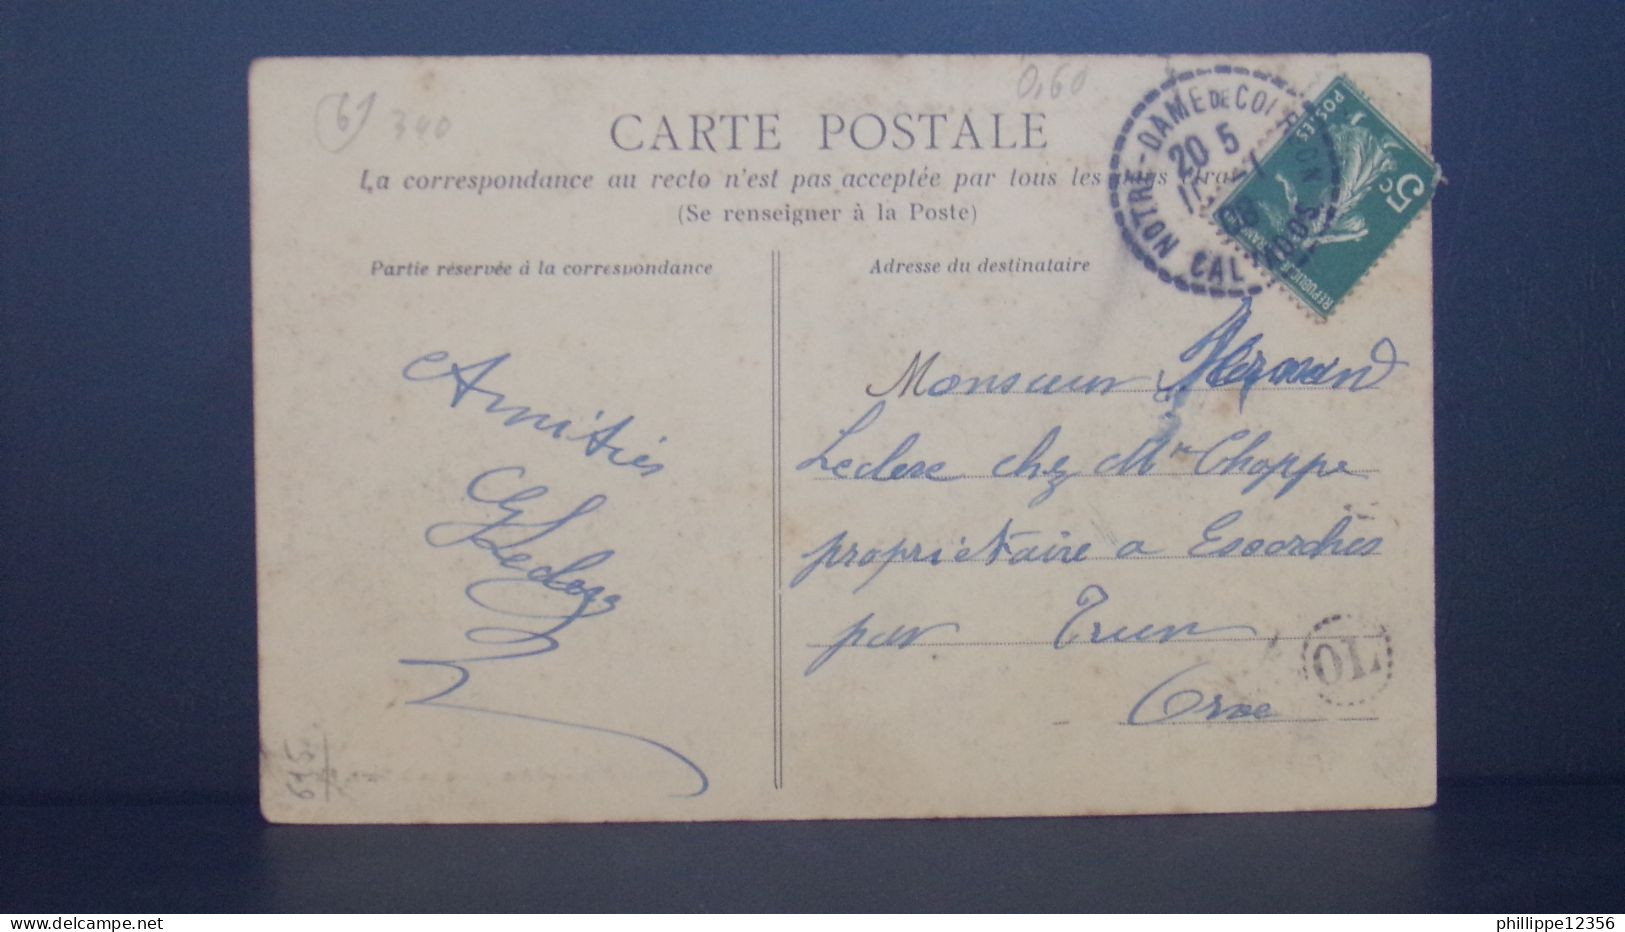 61
340
0,60
CARTE POSTALE
La correspondance au recto n'est pas acceptée par tous les
(Se renseigner à la Poste)
NOTRE-DAME DE COURSON
20 5
08
CALVADOS
POSTES
5c
REPUBLIQUE FRANCAISE
Partie réservée à la correspondance
Adresse du destinataire
Amitiés
Leclerc
Monsieur
Leclerc chez Mr Choppe
propriétaire a Escorches
par Trun
Orne
OL
615
delcampe.net
phillippe12356